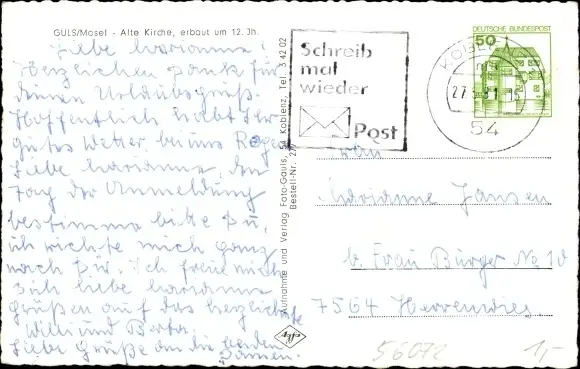 GULS/Mosel - Alte Kirche, erbaut um 12. Jh.
Liebe Marianne!
Herzlichen Dank für
deinen Urlaubsgruß.
Hoffentlich habt Ihr
gutes Wetter, bei uns Regen
Liebe Marianne, den
Tag der Anmeldung
bestimme bitte Du,
ich richte mich ganz
nach Dir. Ich freue mich
Liebe Marianne
grüßen auf das herzlichste
Willi und Berta.
Liebe Grüße an die beiden
Damen.
Aufnahme und Verlag Foto-Gauls, 54 Koblenz, Tel. 3 42 02
Bestell-Nr.
Agfa
Schreib
mal
wieder
Post
DEUTSCHE BUNDESPOST
50
54
Frau
Marianne Jansen
b. Frau Bürger No 10
7564
56072
1,-